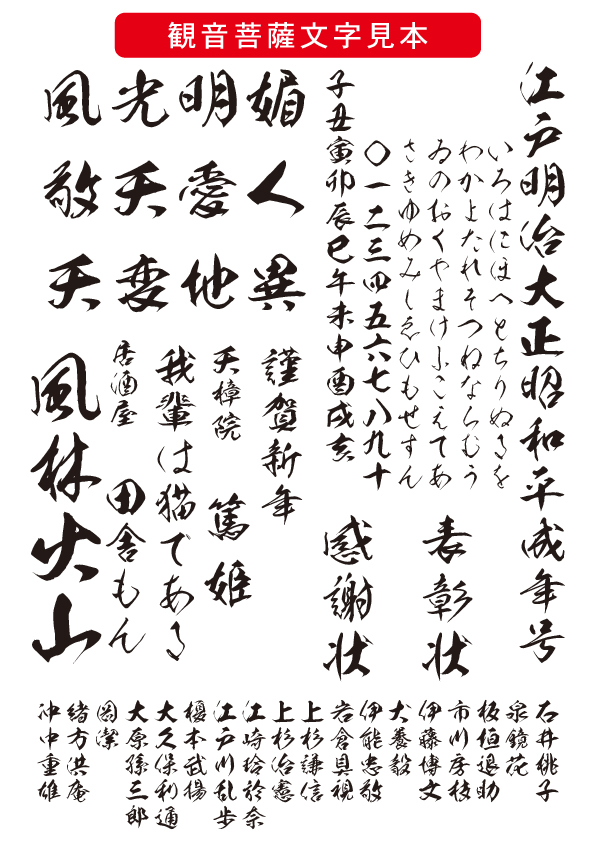 観音菩薩文字見本
江戸明治大正昭和平成年号
いろはにほへとちりぬるを
わかよたれそつねならむう
ゐのおくやまけふこえてあ
さきゆめみしゑひもせすん
〇一二三四五六七八九十
子丑寅卯辰巳午未申酉戌亥
表彰状
感謝状
媚人異
明愛地
光天変
風敬天
謹賀新年
天樟院 篤姫
我輩は猫である
居酒屋 田舎もん
風林火山
石井桃子
泉鏡花
板垣退助
市川房枝
伊藤博文
犬養毅
伊能忠敬
岩倉具視
上杉謙信
上杉治憲
江崎玲於奈
江戸川乱歩
榎本武揚
大久保利通
大原孫三郎
岡潔
緒方洪庵
沖中重雄